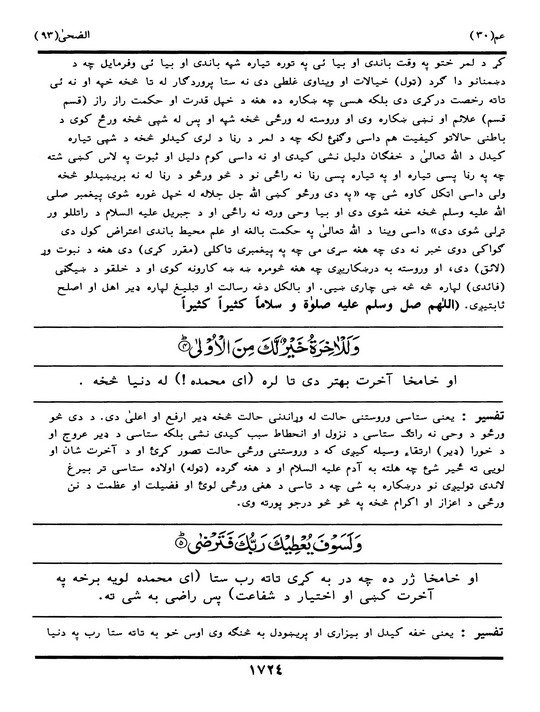 عم(۳۰) الضحیٰ(۹۳)
کړ د لمر ختو په وقت باندی او بیا ئی په توره تیاره شپه باندی او بیا ئی وفرمایل چه د
دښمنانو دا گرد (ټول) خیالات او ویناوی غلطی دی نه ستا پروردگار له تا څخه خپه او نه ئی
تاته رخصت درکړی دی بلکه هسی چه ښکاره ده هغه د خپل قدرت او حکمت راز راز (قسم
قسم) علائم او نښی ښکاره وی او وروسته له ورځی څخه شپه او پس له شپی څخه ورځ کوی د
باطنی حالاتو کیفیت هم داسی وگڼئ لکه چه د لمر د رڼا د لری کیدلو څخه د شپی تیاره
کیدل د الله تعالیٰ د خفگان دلیل نشی کیدی او نه داسی کوم دلیل او ثبوت په لاس کښی شته
چه په رڼا پسی تیاره او په تیاره پسی رڼا نه راځی نو د څو ورځو د رڼا له نه بریښیدلو څخه
ولی داسی اټکل کاوه شی چه «په دی ورځو کښی الله جل جلاله له خپل غوره شوی پیغمبر صلی
الله علیه وسلم څخه خفه شوی دی او بیا وحی ورته نه راځی او د جبریل علیه السلام د راتللو ور
تړلی شوی دی» داسی وینا د الله تعالیٰ په حکمت بالغه او علم محیط باندی اعتراض کول دی
گواکی دوی خبر نه دی چه هغه سړی می چه په پیغمبری ټاکلی (مقرر کړی) دی هغه د نبوت وړ
(لائق) دی، او وروسته به درښکاریږی چه هغه څومره ښه ښه کارونه کوی او د خلقو د ښیگڼی
(فائدی) لپاره څه څه ښی چاری ښیی. او بالکل دغه رسالت او تبلیغ لپاره ډیر اهل او اصلح
ثابتیږی. (اللهم صل وسلم علیه صلوٰة و سلاماً کثیراً کثیراً
وَلَلْاٰخِرَةُ خَيْرٌ لَّكَ مِنَ الْاُوْلٰى ۴
او خامخا آخرت بهتر دی تا لره (ای محمده!) له دنیا څخه .
تفسیر : یعنی ستاسی وروستنی حالت له وړاندنی حالت څخه ډیر ارفع او اعلیٰ دی. د دی څو
ورځو د وحی نه راتگ ستاسی د نزول او انحطاط سبب کیدی نشی بلکه ستاسی د ډیر عروج او
د خورا (ډیر) ارتقاء وسیله کیږی که د وروستنی ورځی حالت تصور کړئ او د آخرت شان او
لویی ته ځیر شئ چه هلته به آدم علیه السلام او د هغه گرده (ټوله) اولاده ستاسی تر بیرغ
لاندی ټولیږی نو درښکاره به شی چه د تاسی د هغی ورځی لوئ او فضیلت او عظمت د نن
ورځی د اعزاز او اکرام څخه په څو څو درجو پورته وی.
وَلَسَوْفَ يُعْطِيْكَ رَبُّكَ فَتَرْضٰى ۵
او خامخا ژر ده چه در به کړی تاته رب ستا (ای محمده لویه برخه په
آخرت کښی او اختیار د شفاعت) پس راضی به شی ته.
تفسیر : یعنی خفه کیدل او بیزاری او پریښودل به څنگه وی اوس خو به تاته ستا رب په دنیا
۱۷۲۴